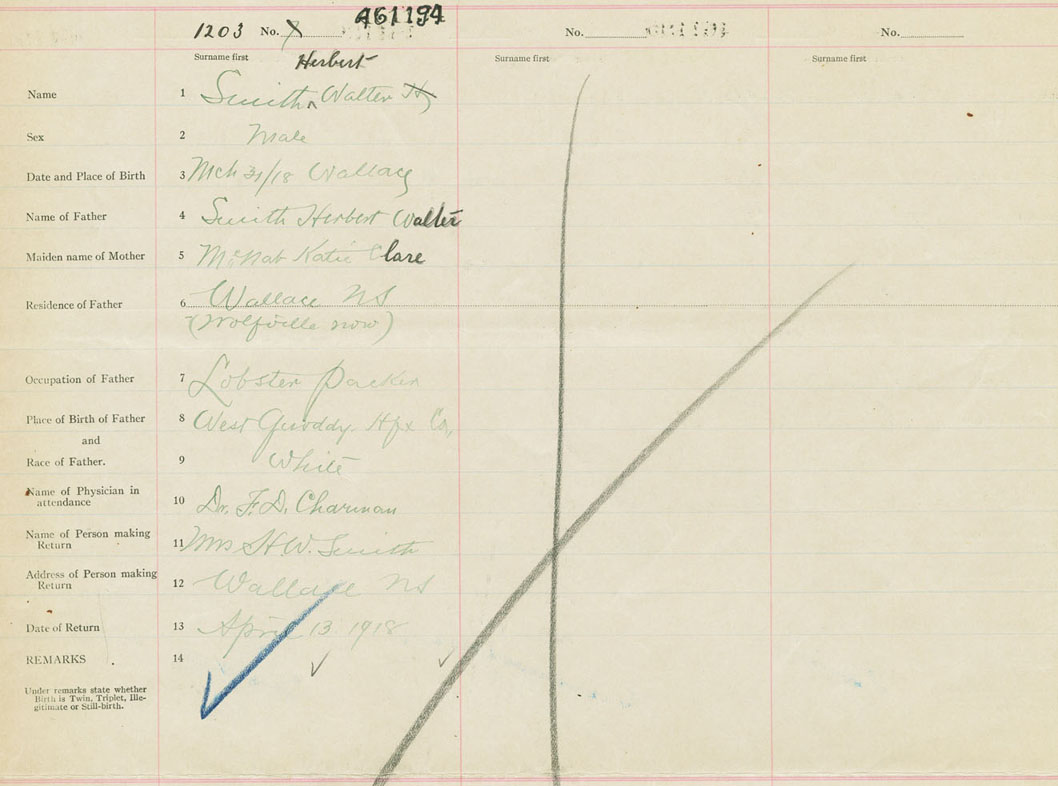 461194
1203 No. No. No.
Surname first Surname first Surname first
Herbert
Name 1 Smith ^ Walter H
Sex 2 Male
Date and Place of Birth 3 Mch 31/18 Wallace
Name of Father 4 Smith Herbert Walter
Maiden name of Mother 5 McNab Katie Clare
Residence of Father 6 Wallace NS
(Wolfville now)
Occupation of Father 7 Lobster Packer
Place of Birth of Father 8 West Quoddy. Hfx Co,
and
Race of Father. 9 White
Name of Physician in
attendance 10 Dr. F. D. Charman
Name of Person making
Return 11 Mrs H. W. Smith
Address of Person making
Return 12 Wallace NS
Date of Return 13 April 13. 1918
REMARKS 14
Under remarks state whether
Birth is Twin, Triplet, Ille-
gitimate or Still-birth.